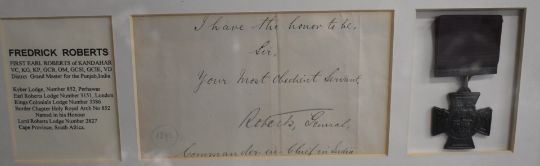 FREDRICK ROBERTS
FIRST EARL ROBERTS of KANDAHAR
VC, KG, KP, GCB, OM, GCSI, GCIE, VD
District Grand Master for the Punjab, India
Kyber Lodge, Number 852, Perhawar
Earl Roberts Lodge Number 3151, London
Kings Colonials Lodge Number 3386
Border Chapter Holy Royal Arch No 852
Named in his Honour
Lord Roberts Lodge Number 2827
Cape Province, South Africa.
I have the honor to be,
Sir,
Your Most Obedient Servant,
Roberts, General,
Commander-in-Chief in India